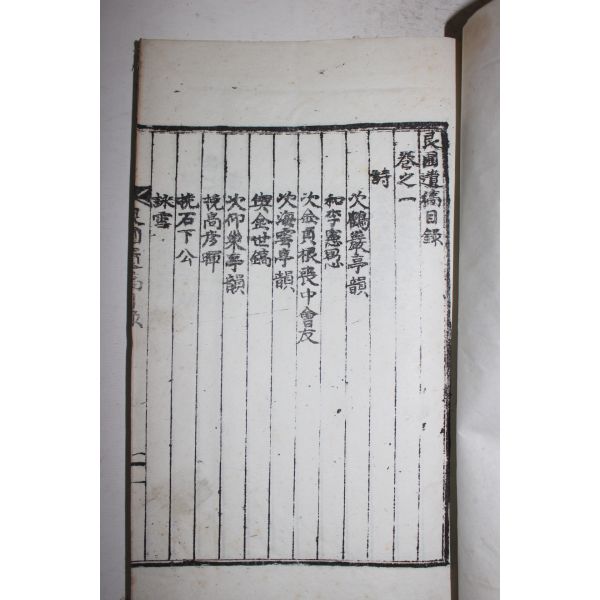 艮園遺稿目錄
卷之一
詩
次鸛巖亭韻
和李憲思
次金員根喪中會友
次海雲亭韻
與金世鎬
次仰巢亭韻
挽高彦暉
挽石下公
詠雪
艮園遺稿目錄
一